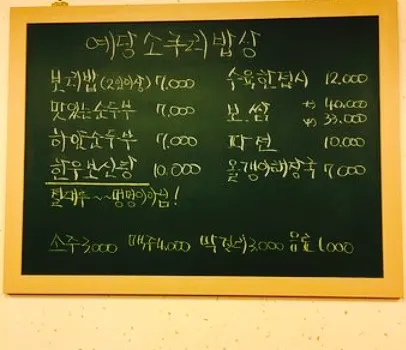 예당소쿠리밥상
보리밥(2인이상) 7,000 수육한접시 12,000
맛있는순두부 7,000 보쌈 大 40,000
中 33,000
하얀순두부 7,000 파전 10,000
한우보신탕 10,000 올갱이해장국 7,000
절대추~~멍멍이아님!
소주3,000 맥주4,000 막걸리3,000 음료1,000